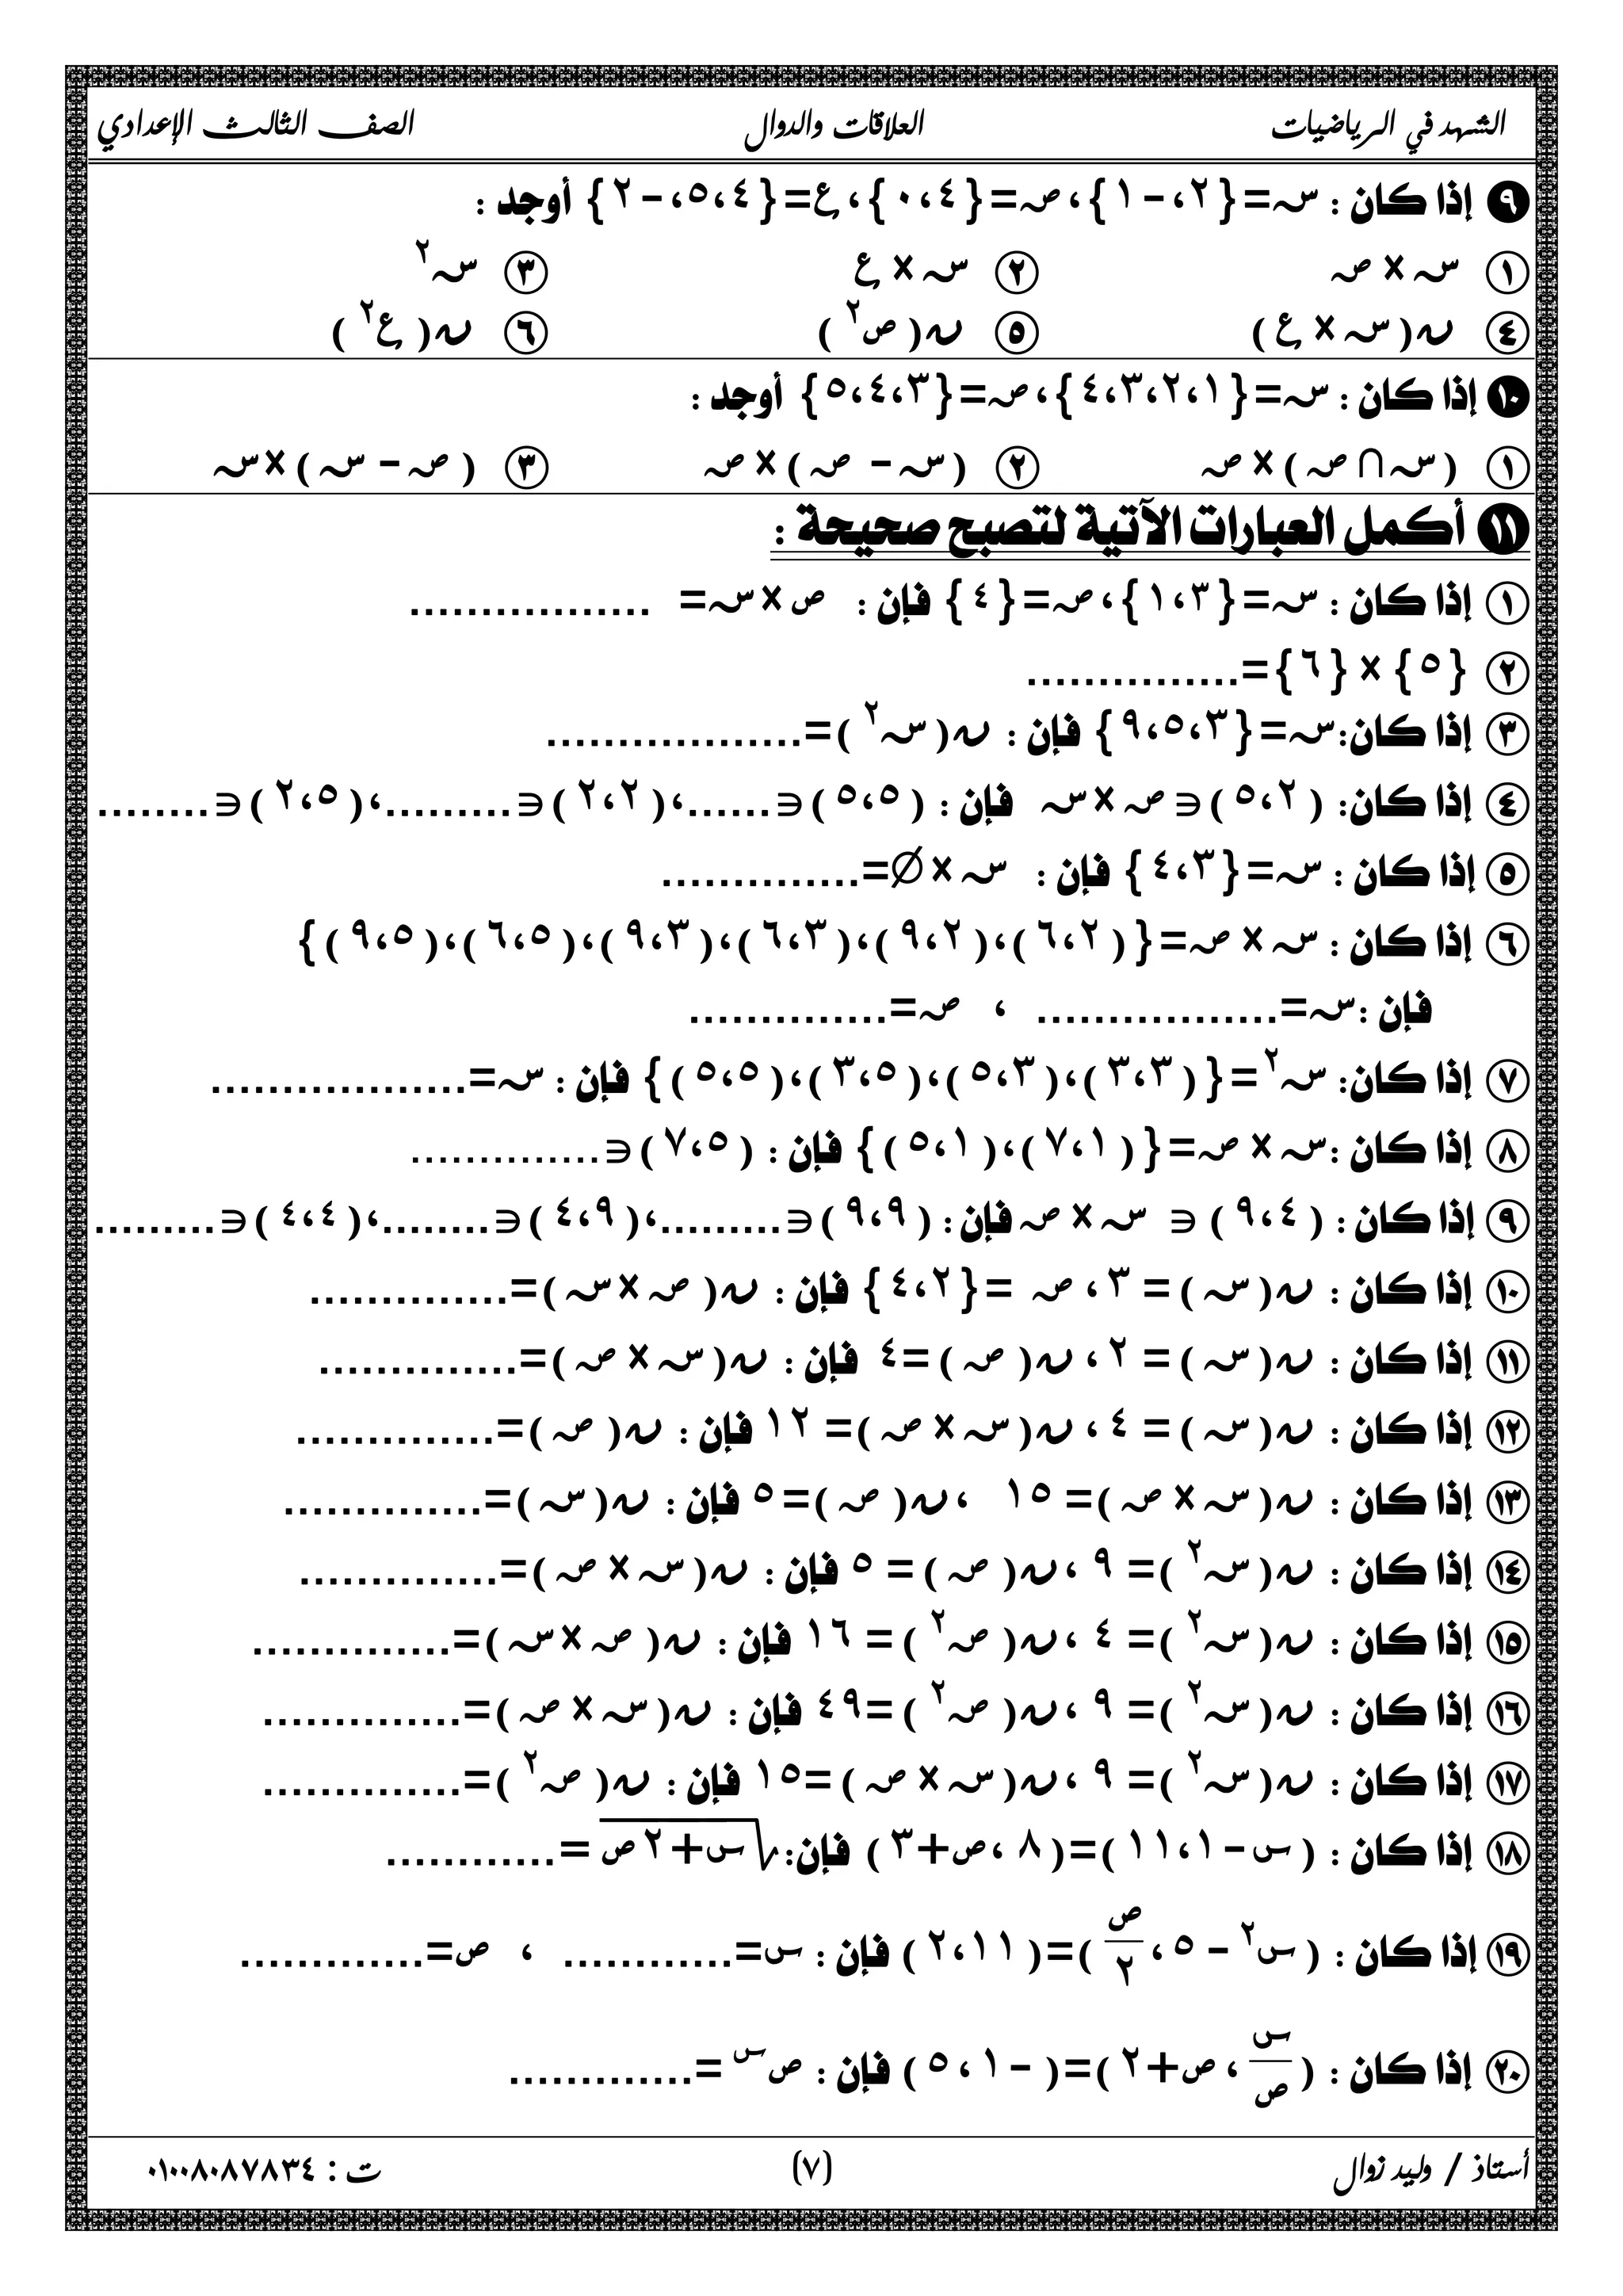 الشهد في الرياضيات العلاقات والدوال الصف الثالث الإعدادي
٩ إذا كان : سـ={٢،-١}، صـ={٤،٠}، ع={٤،٥،-٢} أوجد :
١ سـ×صـ ٢ سـ×ع ٣ سـ²
٤ ن(سـ×ع) ٥ ن(ص²) ٦ ن(ع²)
١٠ إذا كان : سـ={١،٢،٣،٤}، صـ={٣،٤،٥} أوجد :
١ (سـ∩صـ)×صـ ٢ (سـ-صـ)×صـ ٣ (صـ-سـ)×سـ
١١ أكمل العبارات الآتية لتصبح صحيحة :
١ إذا كان : سـ={٣،١}، صـ={٤} فإن : ص×سـ= .................
٢ {٥}×{٦}=...............
٣ إذا كان:سـ={٣،٥،٩} فإن : ن(سـ²)=..................
٤ إذا كان: (٢،٥)∈صـ×سـ فإن : (٥،٥)∈......،(٢،٢)∈.........،(٥،٢)∈........
٥ إذا كان : سـ={٣،٤} فإن : سـ×∅=..............
٦ إذا كان : سـ×صـ={(٢،٦)،(٢،٩)،(٣،٦)،(٣،٩)،(٥،٦)،(٥،٩)}
فإن :سـ=................. ، صـ=..............
٧ إذا كان: سـ²={(٣،٣)،(٣،٥)،(٥،٣)،(٥،٥)} فإن : سـ=..................
٨ إذا كان :سـ×صـ={(١،٧)،(١،٥)} فإن : (٥،٧)∈..............
٩ إذا كان : (٤،٩) ∈ سـ×صـ فإن : (٩،٩)∈.........،(٩،٤)∈........،(٤،٤)∈.........
١٠ إذا كان : ن(سـ) = ٣ ، صـ ={٢،٤} فإن : ن(صـ×سـ)=..............
١١ إذا كان : ن(سـ) = ٢ ، ن(صـ) =٤ فإن : ن(سـ×صـ)=..............
١٢ إذا كان : ن(سـ) = ٤ ، ن(سـ×صـ)= ١٢ فإن : ن(صـ)=..............
١٣ إذا كان : ن(سـ×صـ)= ١٥ ، ن(صـ)=٥ فإن : ن(سـ)=..............
١٤ إذا كان : ن(سـ²)= ٩ ، ن(صـ) = ٥ فإن : ن(سـ×صـ)=..............
١٥ إذا كان : ن(سـ²)= ٤ ، ن(صـ²) = ١٦ فإن : ن(صـ×سـ)=..............
١٦ إذا كان : ن(سـ²)= ٩ ، ن(صـ²) =٤٩ فإن : ن(سـ×صـ)=..............
١٧ إذا كان : ن(سـ²)= ٩ ، ن(سـ×صـ) =١٥ فإن : ن(صـ²)=..............
١٨ إذا كان : (س-١،١١)=(٨،ص+٣) فإن: √(س+٢ص) =............
١٩ إذا كان : (س²-٥، ص/٢)=(١١،٢) فإن : س=............ ، ص=.............
٢٠ إذا كان : (س/ص ، ص+٢)=(-١،٥) فإن : ص^س =.............
أستاذ / وليد زوال (٧) ت : ٠١٠٠٨٠٨٧٨٣٤